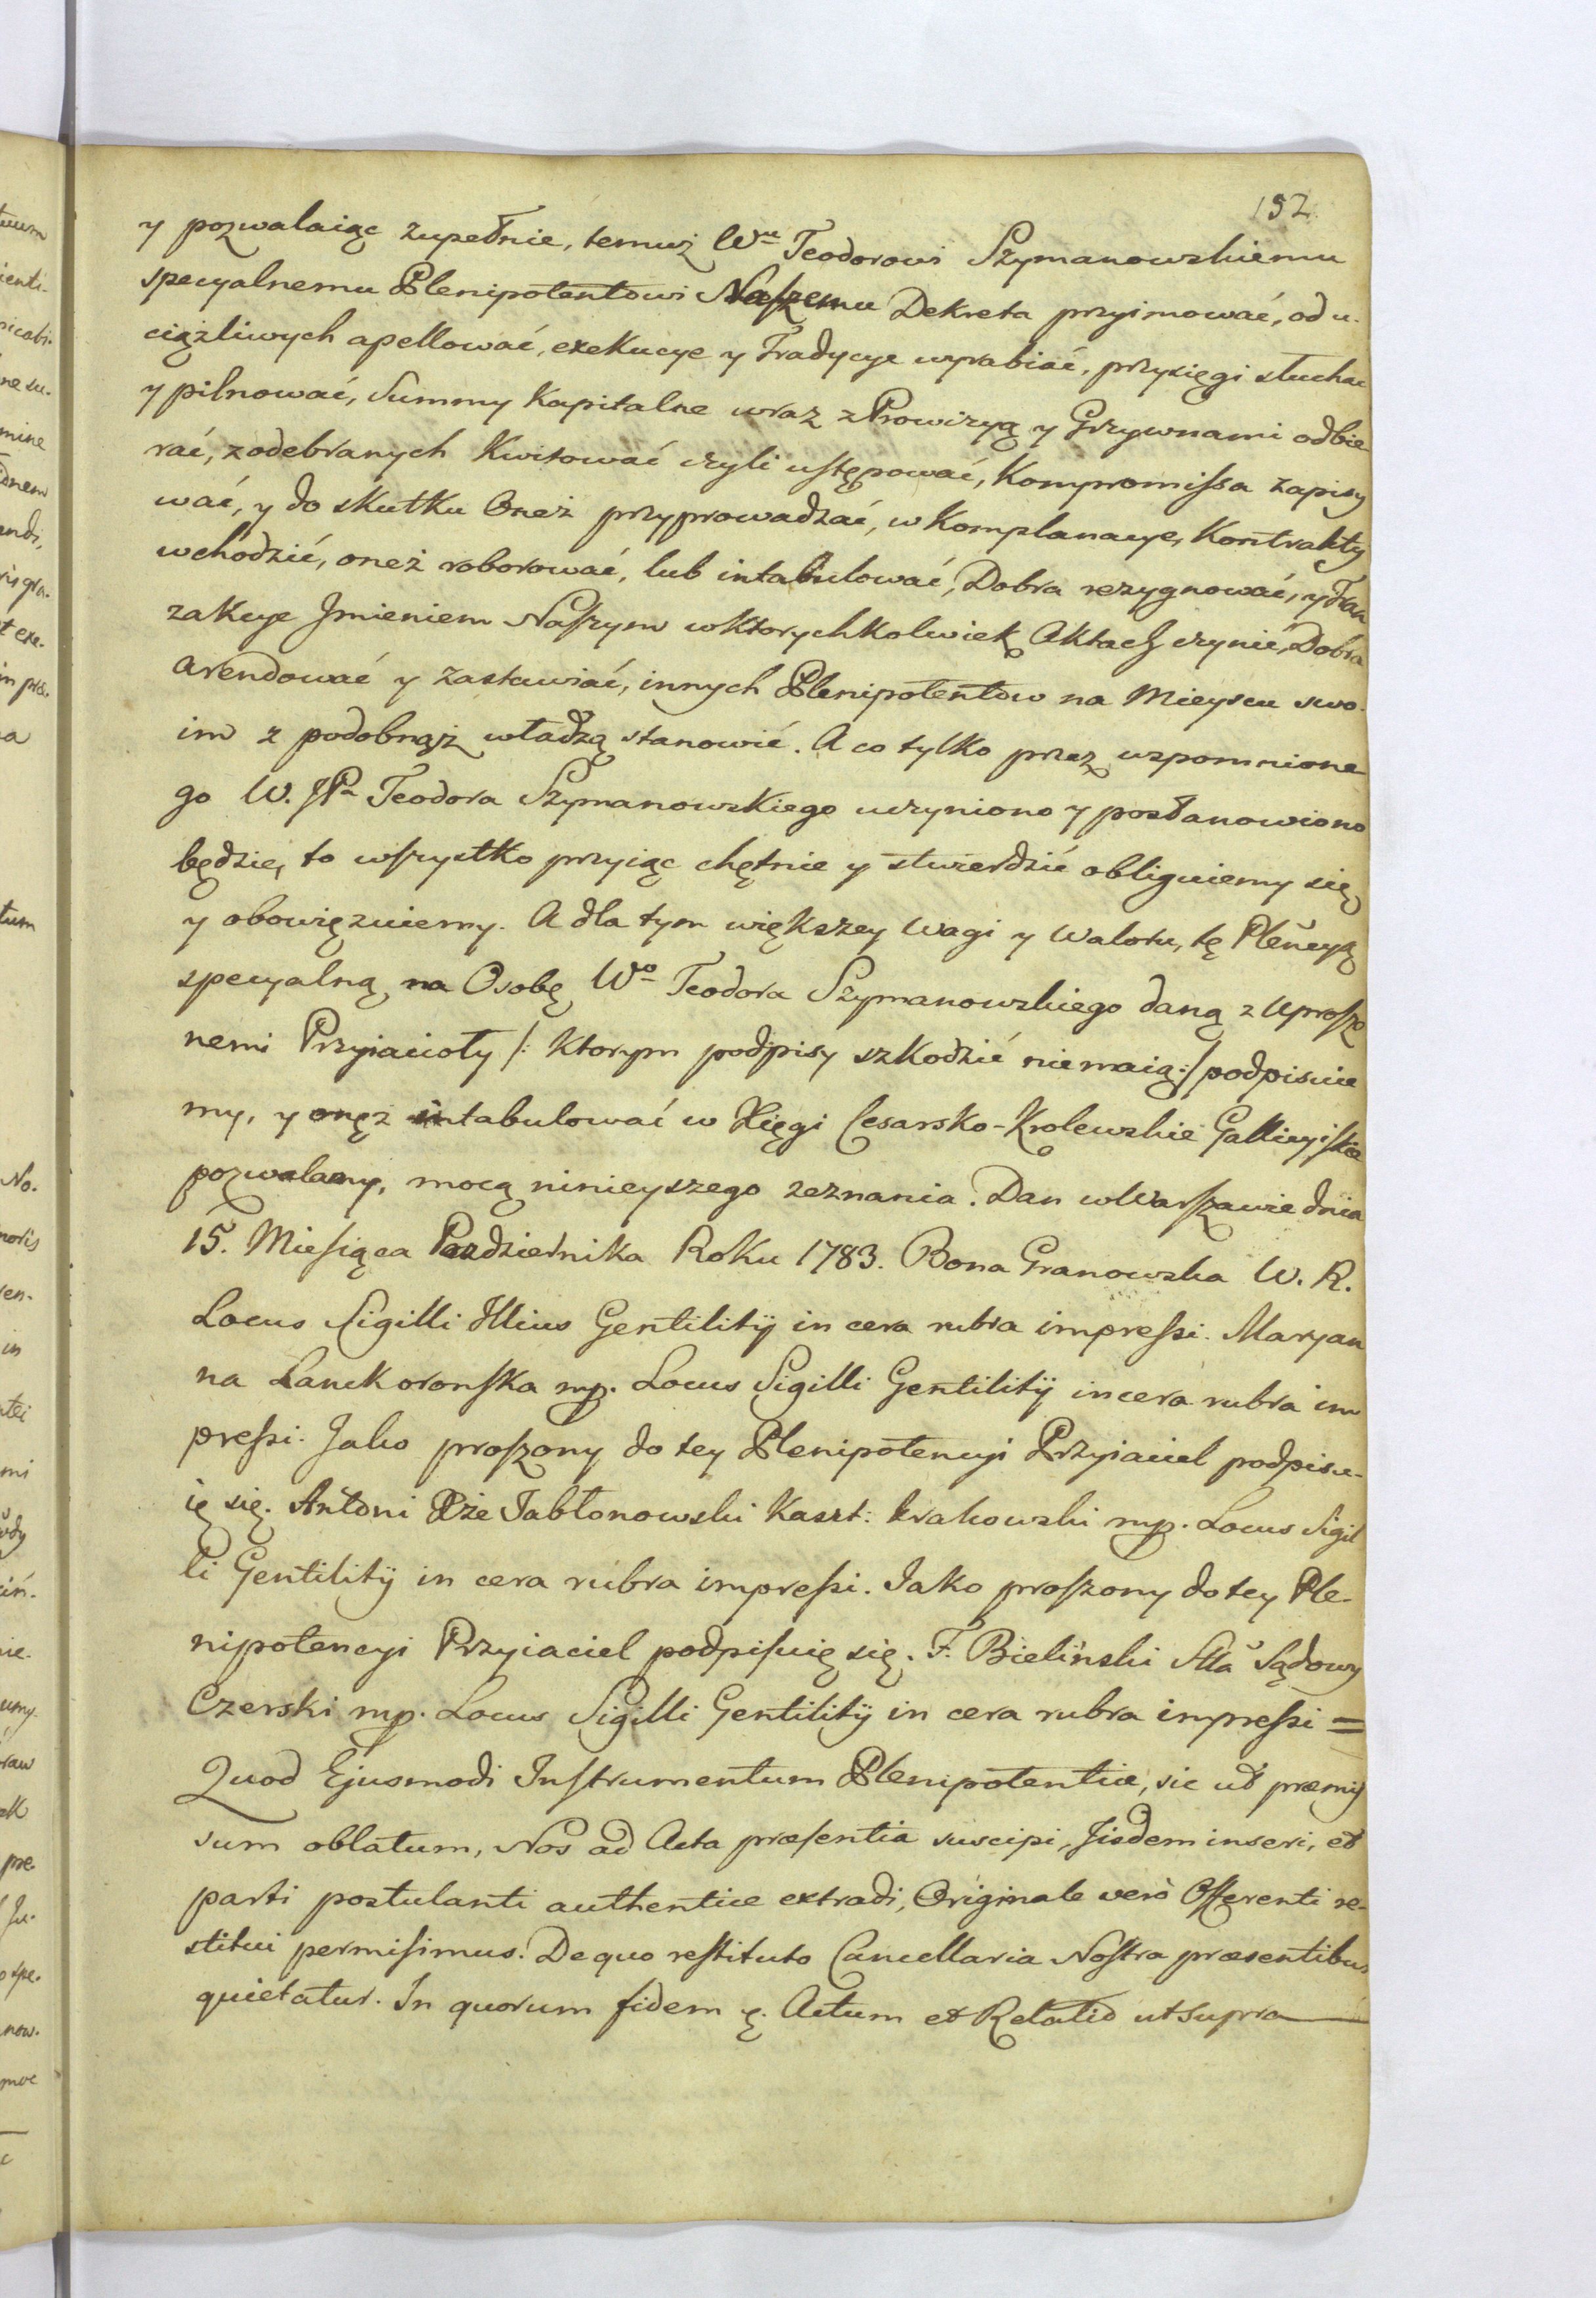 152.
y pozwalaiąc zupełnie, temuż Wu Teodorowi Szymanowskiemu
specyalnemu Plenipotentowi Naszemu Dekreta przyimować, od u-
ciążliwych apellować, exekucye y Tradycye wyrabiać, przysięgi słuchać
y pilnować, Summy Kapitalne wraz z Prowizyą y Grzywnami odbie
rać, z odebranych Kwitować czyli ustępować, Kompromissa zapisy
wać, y do skutku Oneż przyprowadzać, w Komplanacye, Kontrakty
wchodzić, oneż roborować, lub intabulować, Dobra rezygnować, y Tran
zakcye Jmieniem Naszym w ktorychkolwiek Aktach czynić, Dobra
arendować y zastawiać, innych Plenipotentow na Mieyscu swo-
im z podobnąż władzą stanowić. A co tylko przez wspomnione
go W. JPa Teodora Szymanowskiego uczyniono y postanowiono
będzie, to wszystko przyiąc chętnie y stwierdzić obliguiemy się
y obowięzuiemy. A dla tym większey Wagi y Waloru, tę Plen̄cyą
specyalną na Osobę Wo Teodora Szymanowskiego daną z Uprosze
nemi Przyiacioły /: Ktorym podpisy szkodzić nie maią :/ podpisuie
my, y onęż intabulować w Xięgi Cesarsko-Krolewskie Gallicyiskie
pozwalamy, mocą ninieyszego zeznania. Dan w Warszawie dnia
15. Miesiąca Pazdziernika Roku 1783. Bona Granowska W. R.
Locus Sigilli Illius Gentilitij in cera rubra impressi. Maryan
na Lanckoronska mp. Locus Sigilli Gentilitij in cera rubra im
pressi. Jako proszony do tey Plenipotencyi Przyiaciel podpisu-
ię się. Antoni Xże Jabłonowski Kaszt: krakowski mp. Locus Sigil
li Gentilitij in cera rubra impressi. Jako proszony do tey Ple-
nipotencyi Przyiaciel podpisuię się. F. Bieliński Stta Sądowy
Czerski mp. Locus Sigilli Gentilitij in cera rubra impressi =
Quod Ejusmodi Instrumentum Plenipotentiae, sic ut praemis
sum oblatum, Nos ad Acta praesentia suscipi, Jisdem inseri, et
parti postulanti authentice extradi, Originale verò Offerenti re-
stitui permisimus. De quo restituto Cancellaria Nostra praesentibus
quietatur. In quorum fidem ę. Actum et Relatio ut supra